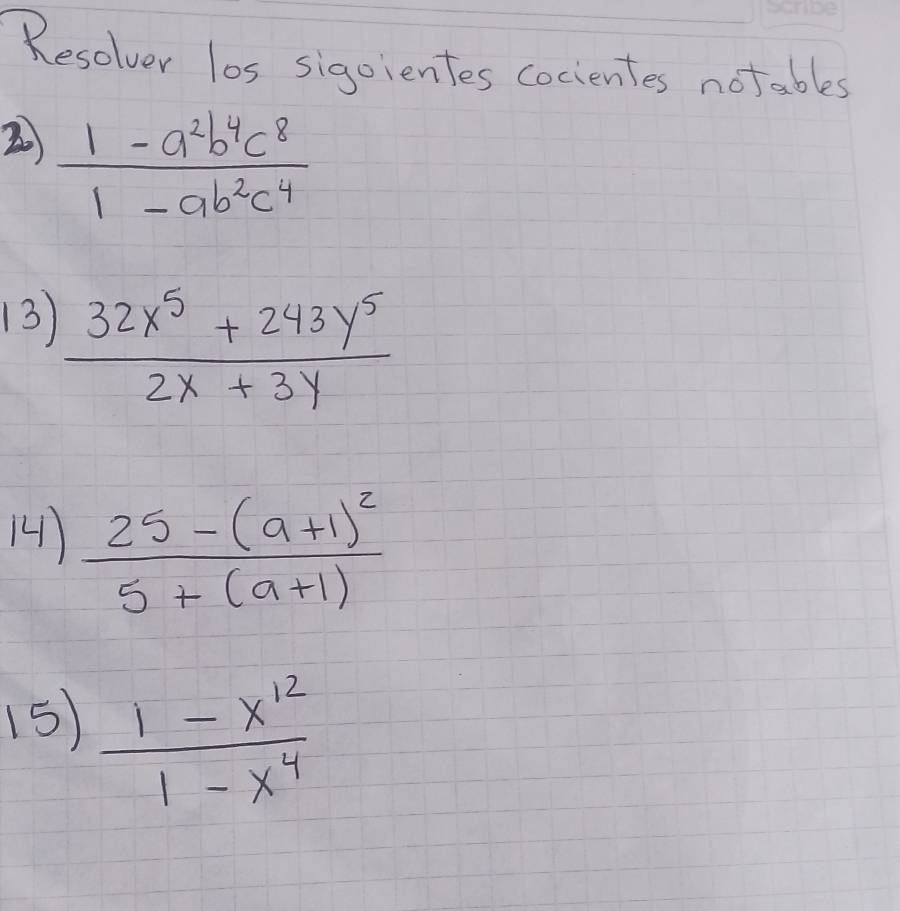 Scribe
Resolver los sigoientes cocientes notables
2) 1 - a²b⁴c⁸
1 - ab²c⁴
13) 32x⁵ + 243y⁵
2x + 3y
14) 25 - (a+1)²
5 + (a+1)
15) 1 - x¹²
1 - x⁴